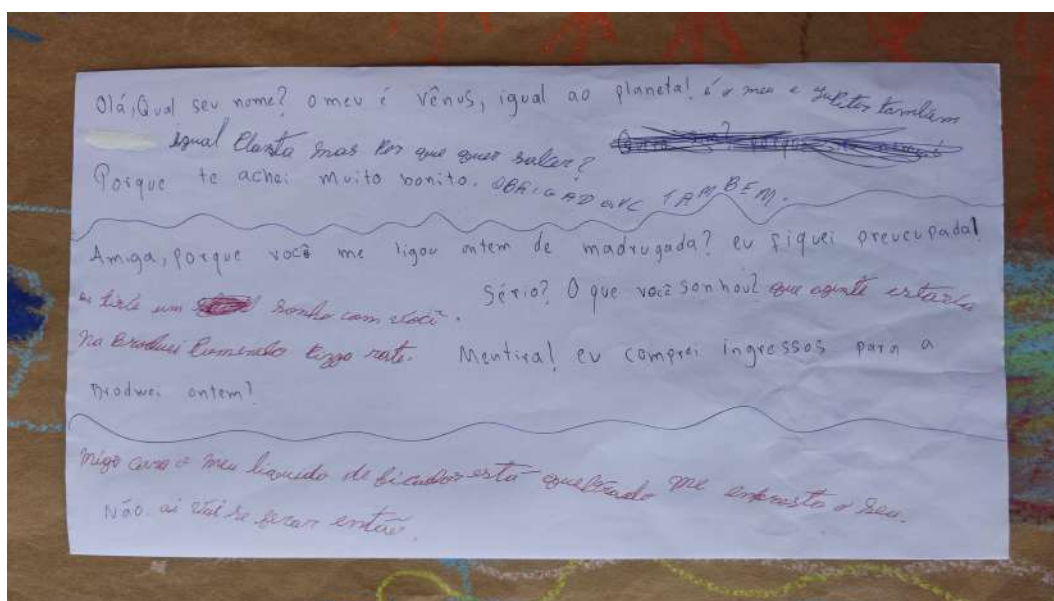 Olá, Qual seu nome? o meu é Vênus, igual ao planeta! é o meu e Jupiter também
igual Planta mas Por que quer falar?
Porque te achei muito bonito. OBRIGAD VC TAMBEM.
Amiga, porque você me ligou ontem de madrugada? eu fiquei preucupada!
eu tive um sonho com você. Sério? O que você sonhou? que agente estaria
na Broduei Comendo Pizza rate. Mentira! eu comprei ingressos para a
Brodwei ontem!
migo cara o meu liquido de ficador está quebrado me empresta o seu.
Não. ai Vai se ferar então.